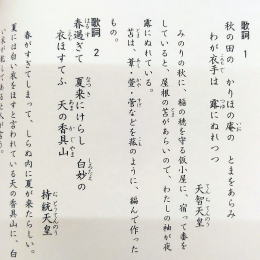 歌詞 1
秋の田の かりほの庵の とまをあらみ
わが衣手は 露にぬれつつ
天智天皇
みのりの秋に、稲の穂を守る仮小屋に、宿って番を
していると、屋根の苫があらいので、わたしの袖が夜
露にぬれている。
苫は、葦・萱・菅などを菰のように、編んで作った
もの。
歌詞 2
春過ぎて 夏来にけらし 白妙の
衣ほすてふ 天の香具山
持統天皇
春がすぎてしまって、しらぬ内に夏が来たらしい。
夏には白い衣をほすと言われている天の香具山に、白